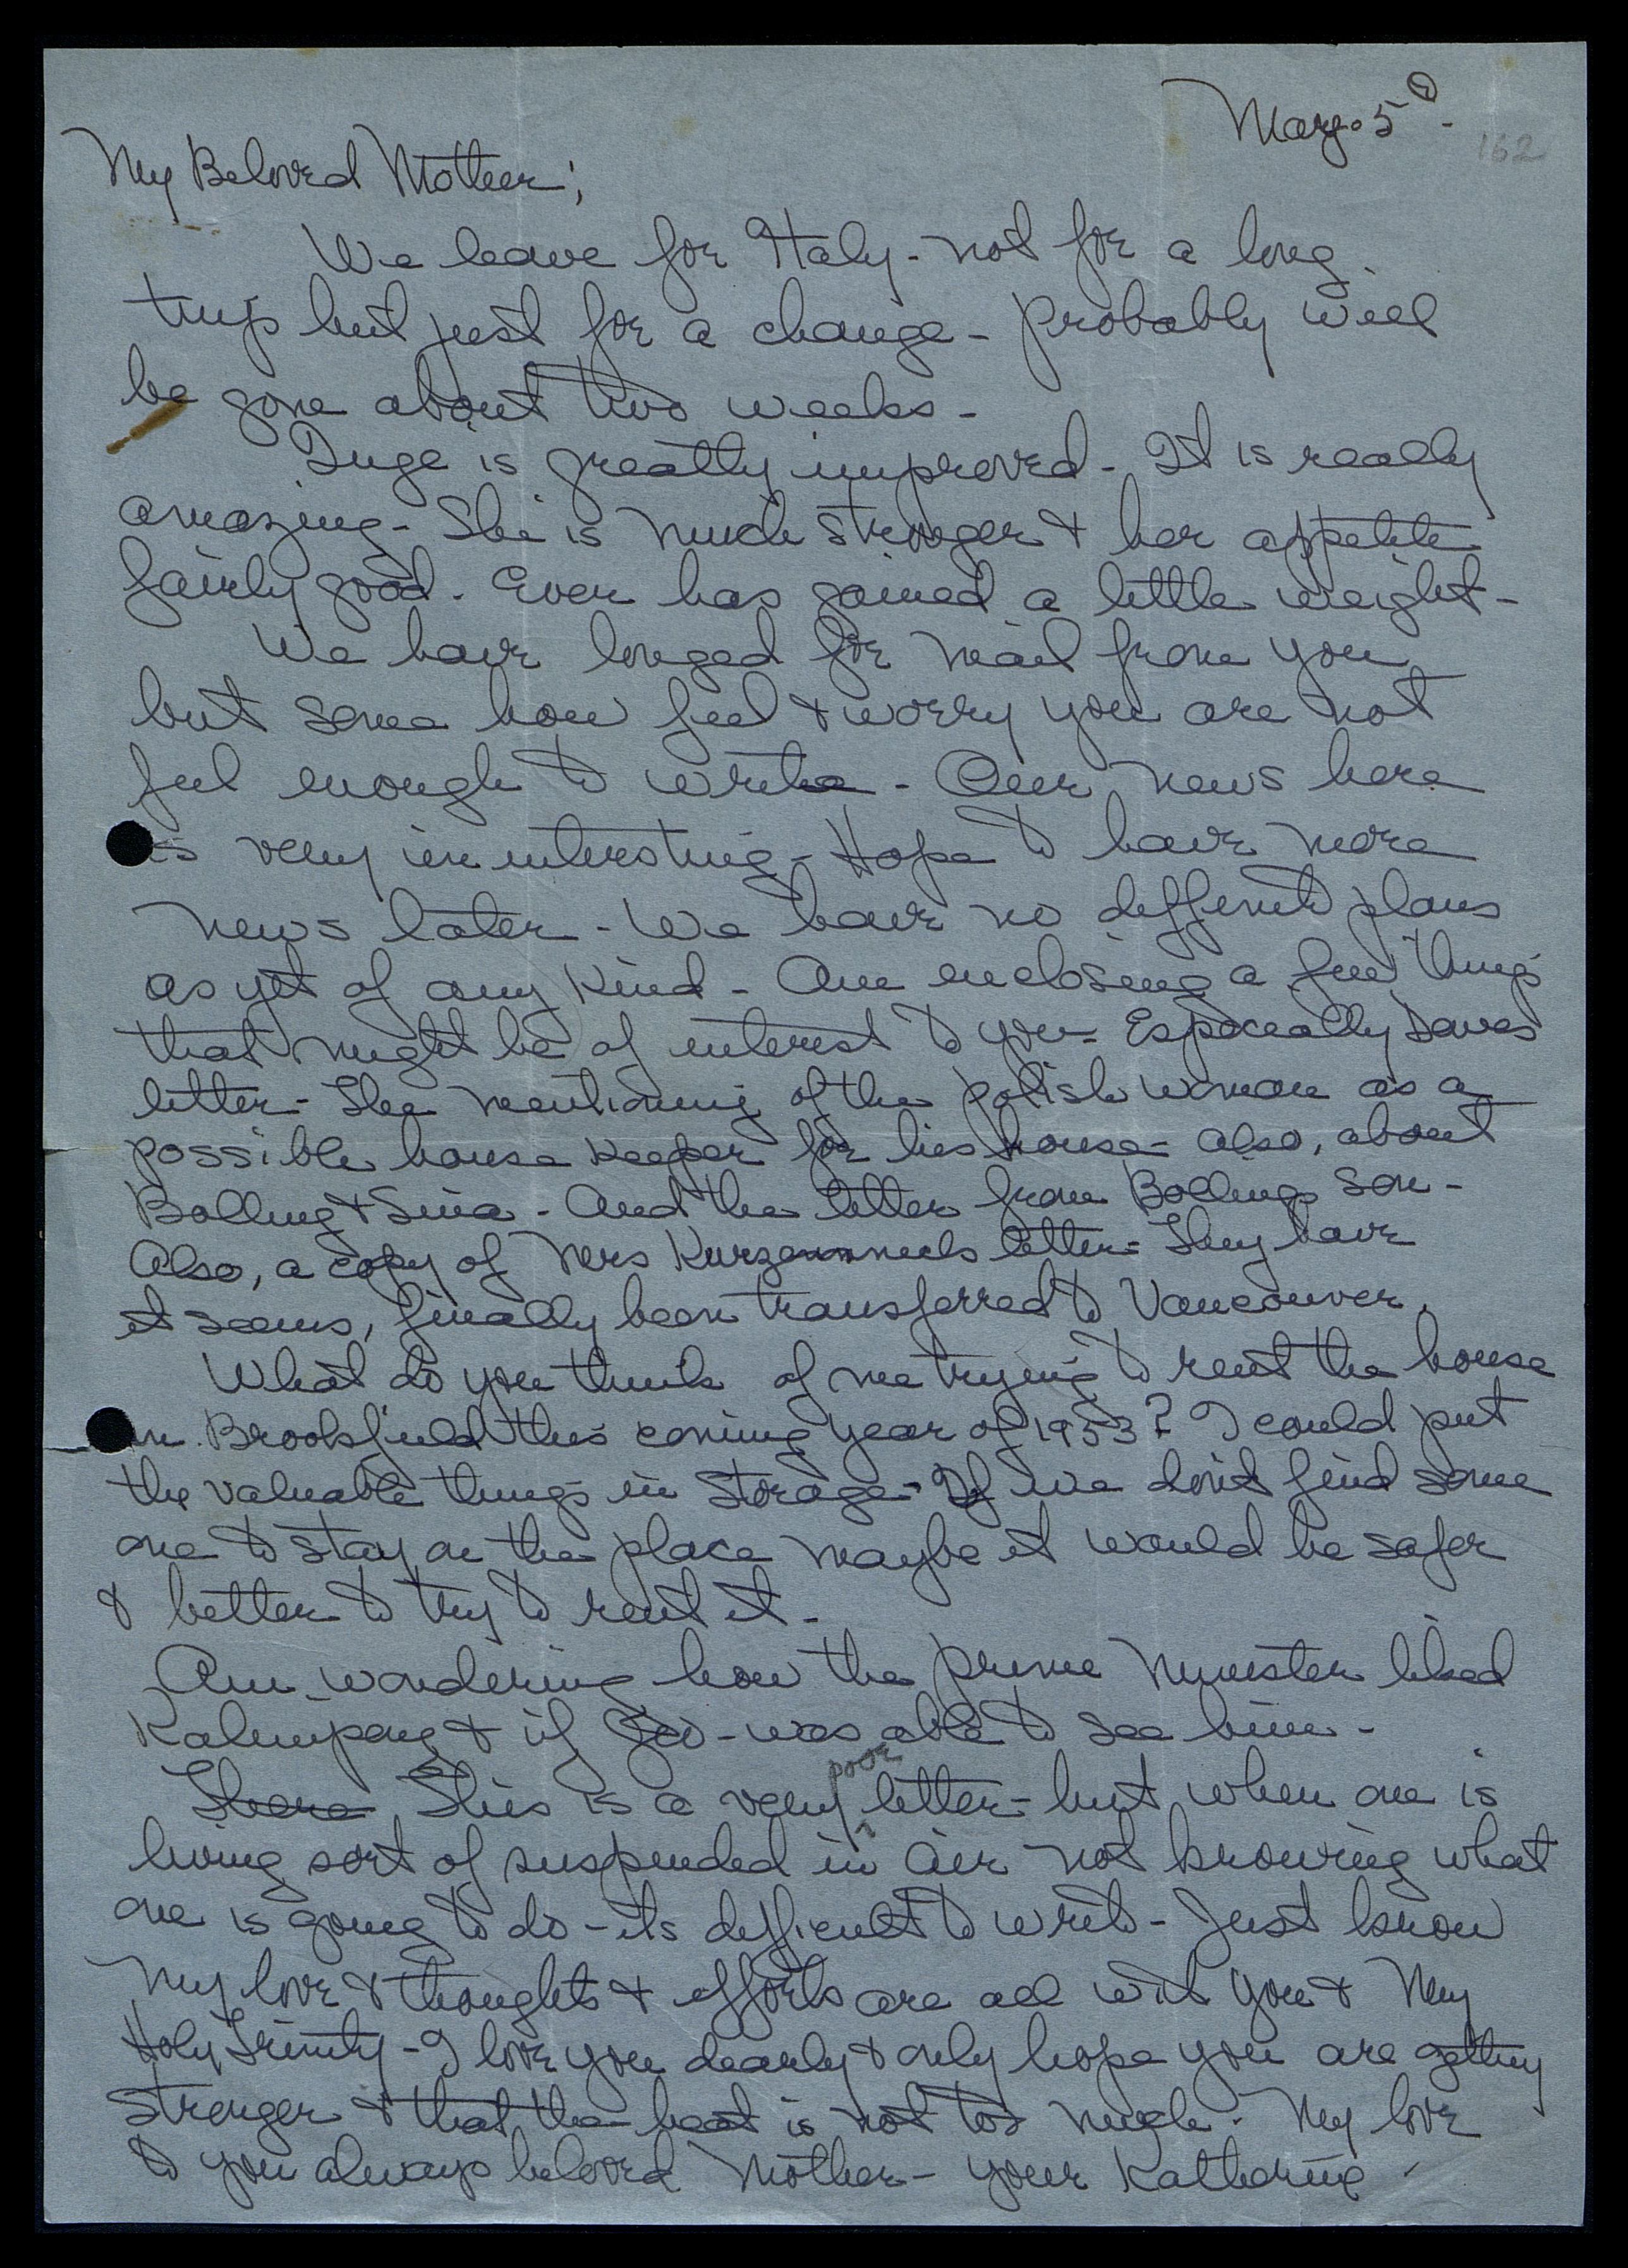 May - 5 -
162
My Beloved Mother;
We leave for Italy - not for a long
trip but just for a change - probably will
be gone about two weeks -
Inge is greatly improved - It is really
amazing - She is much stronger & her appetite
fairly good. Even has gained a little weight -
We have longed for mail from you
but some how feel & worry you are not
feel enough to write - Our news here
is very in interesting - Hope to have more
news later - We have no different plans
as yet of any kind - Am enclosing a few things
that might be of interest to you - Especially Daves
letter - The mentioning of the polish woman as a
possible house keeper for his house - also, about
Bolling & Sina - And the letter from Bollings son -
Also, a copy of Mrs letter - They have
it seems, finally been transferred to Vancouver.
What do you think of me trying to rent the house
in Brookfield this coming year of 1953? I could put
the valuable things in storage - If we dont find some
one to stay on the place maybe it would be safer
& better to try to rent it -
Am wondering how the prime minister liked
Kalimpong & if - was able to see him -
There This is a very poor letter - but when one is
living sort of suspended in air not knowing what
one is going to do - its difficult to write - Just know
my love & thoughts & efforts are all with you & My
Holy Trinity - I love you dearly & only hope you are getting
stronger & that the heat is not too much. My love
to you always beloved Mother - your Katherine -